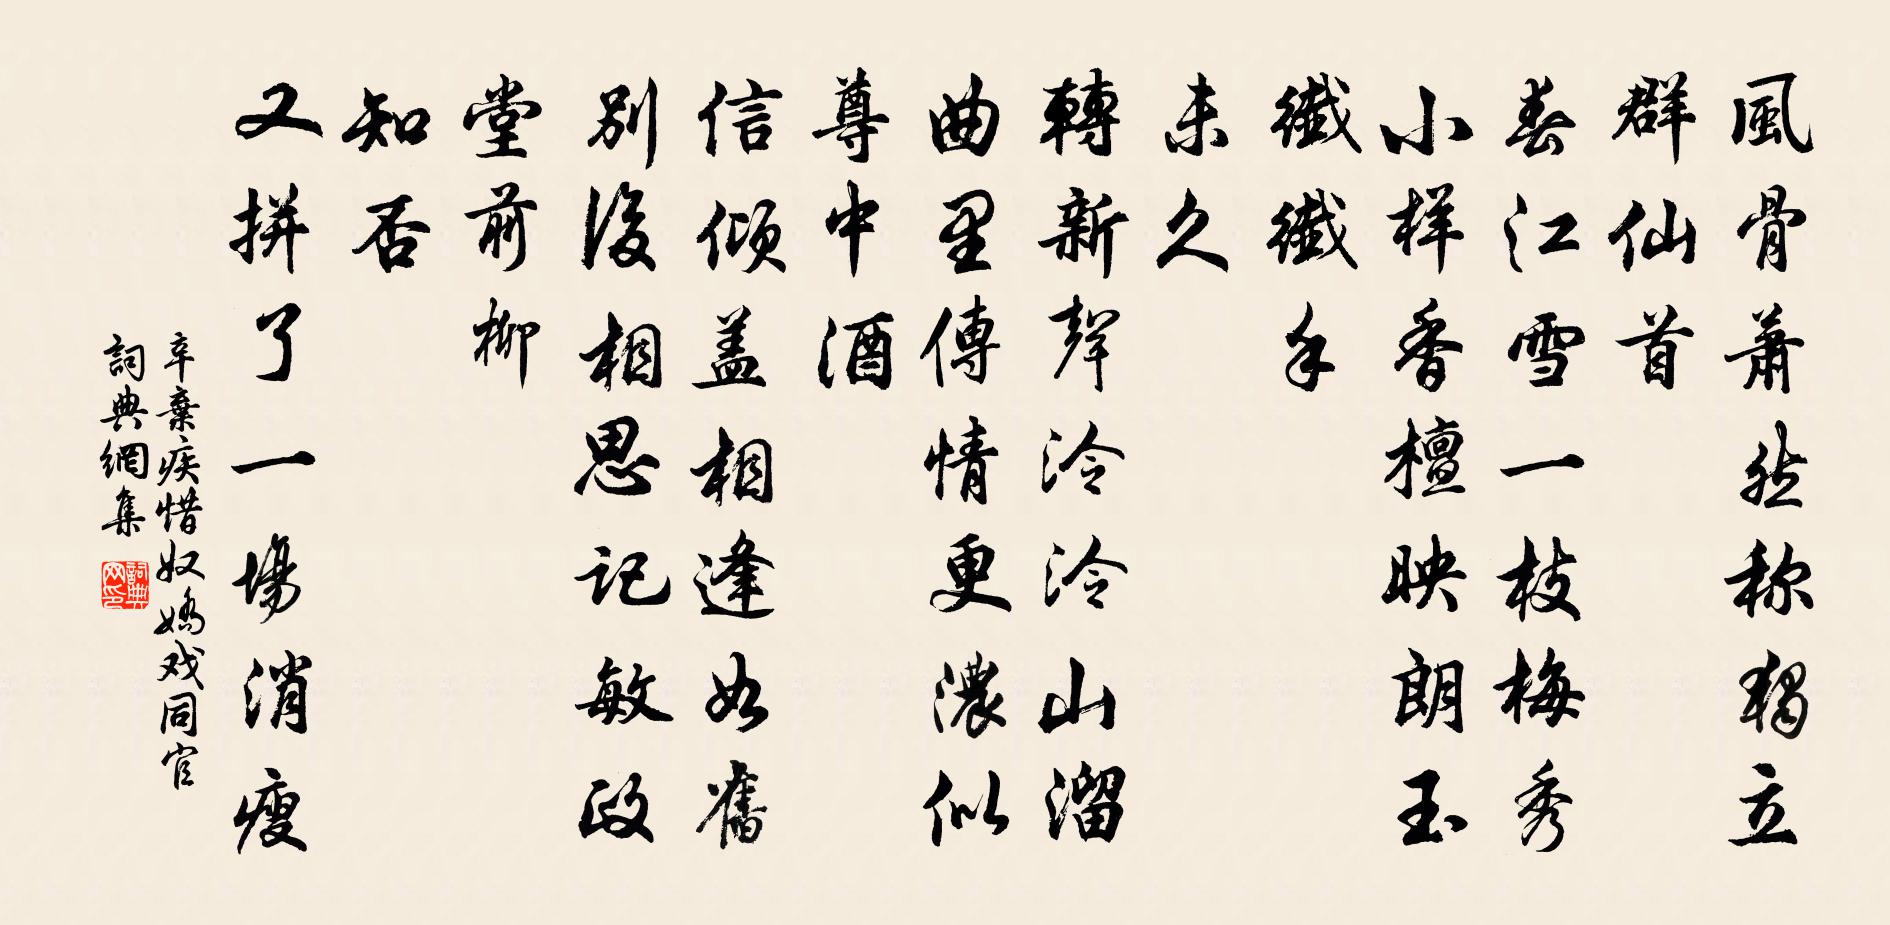 風骨蕭然称獨立
群仙首
春江雪一枝梅秀
小样香檀映朗玉
纖纖手
未久
轉新聲泠泠山溜
曲里傳情更濃似
尊中酒
信傾盖相逢如舊
別後相思記敏政
堂前柳
知否
又拼了一場消瘦
辛棄疾惜奴嬌戏同官
詞典網集
詞典网印